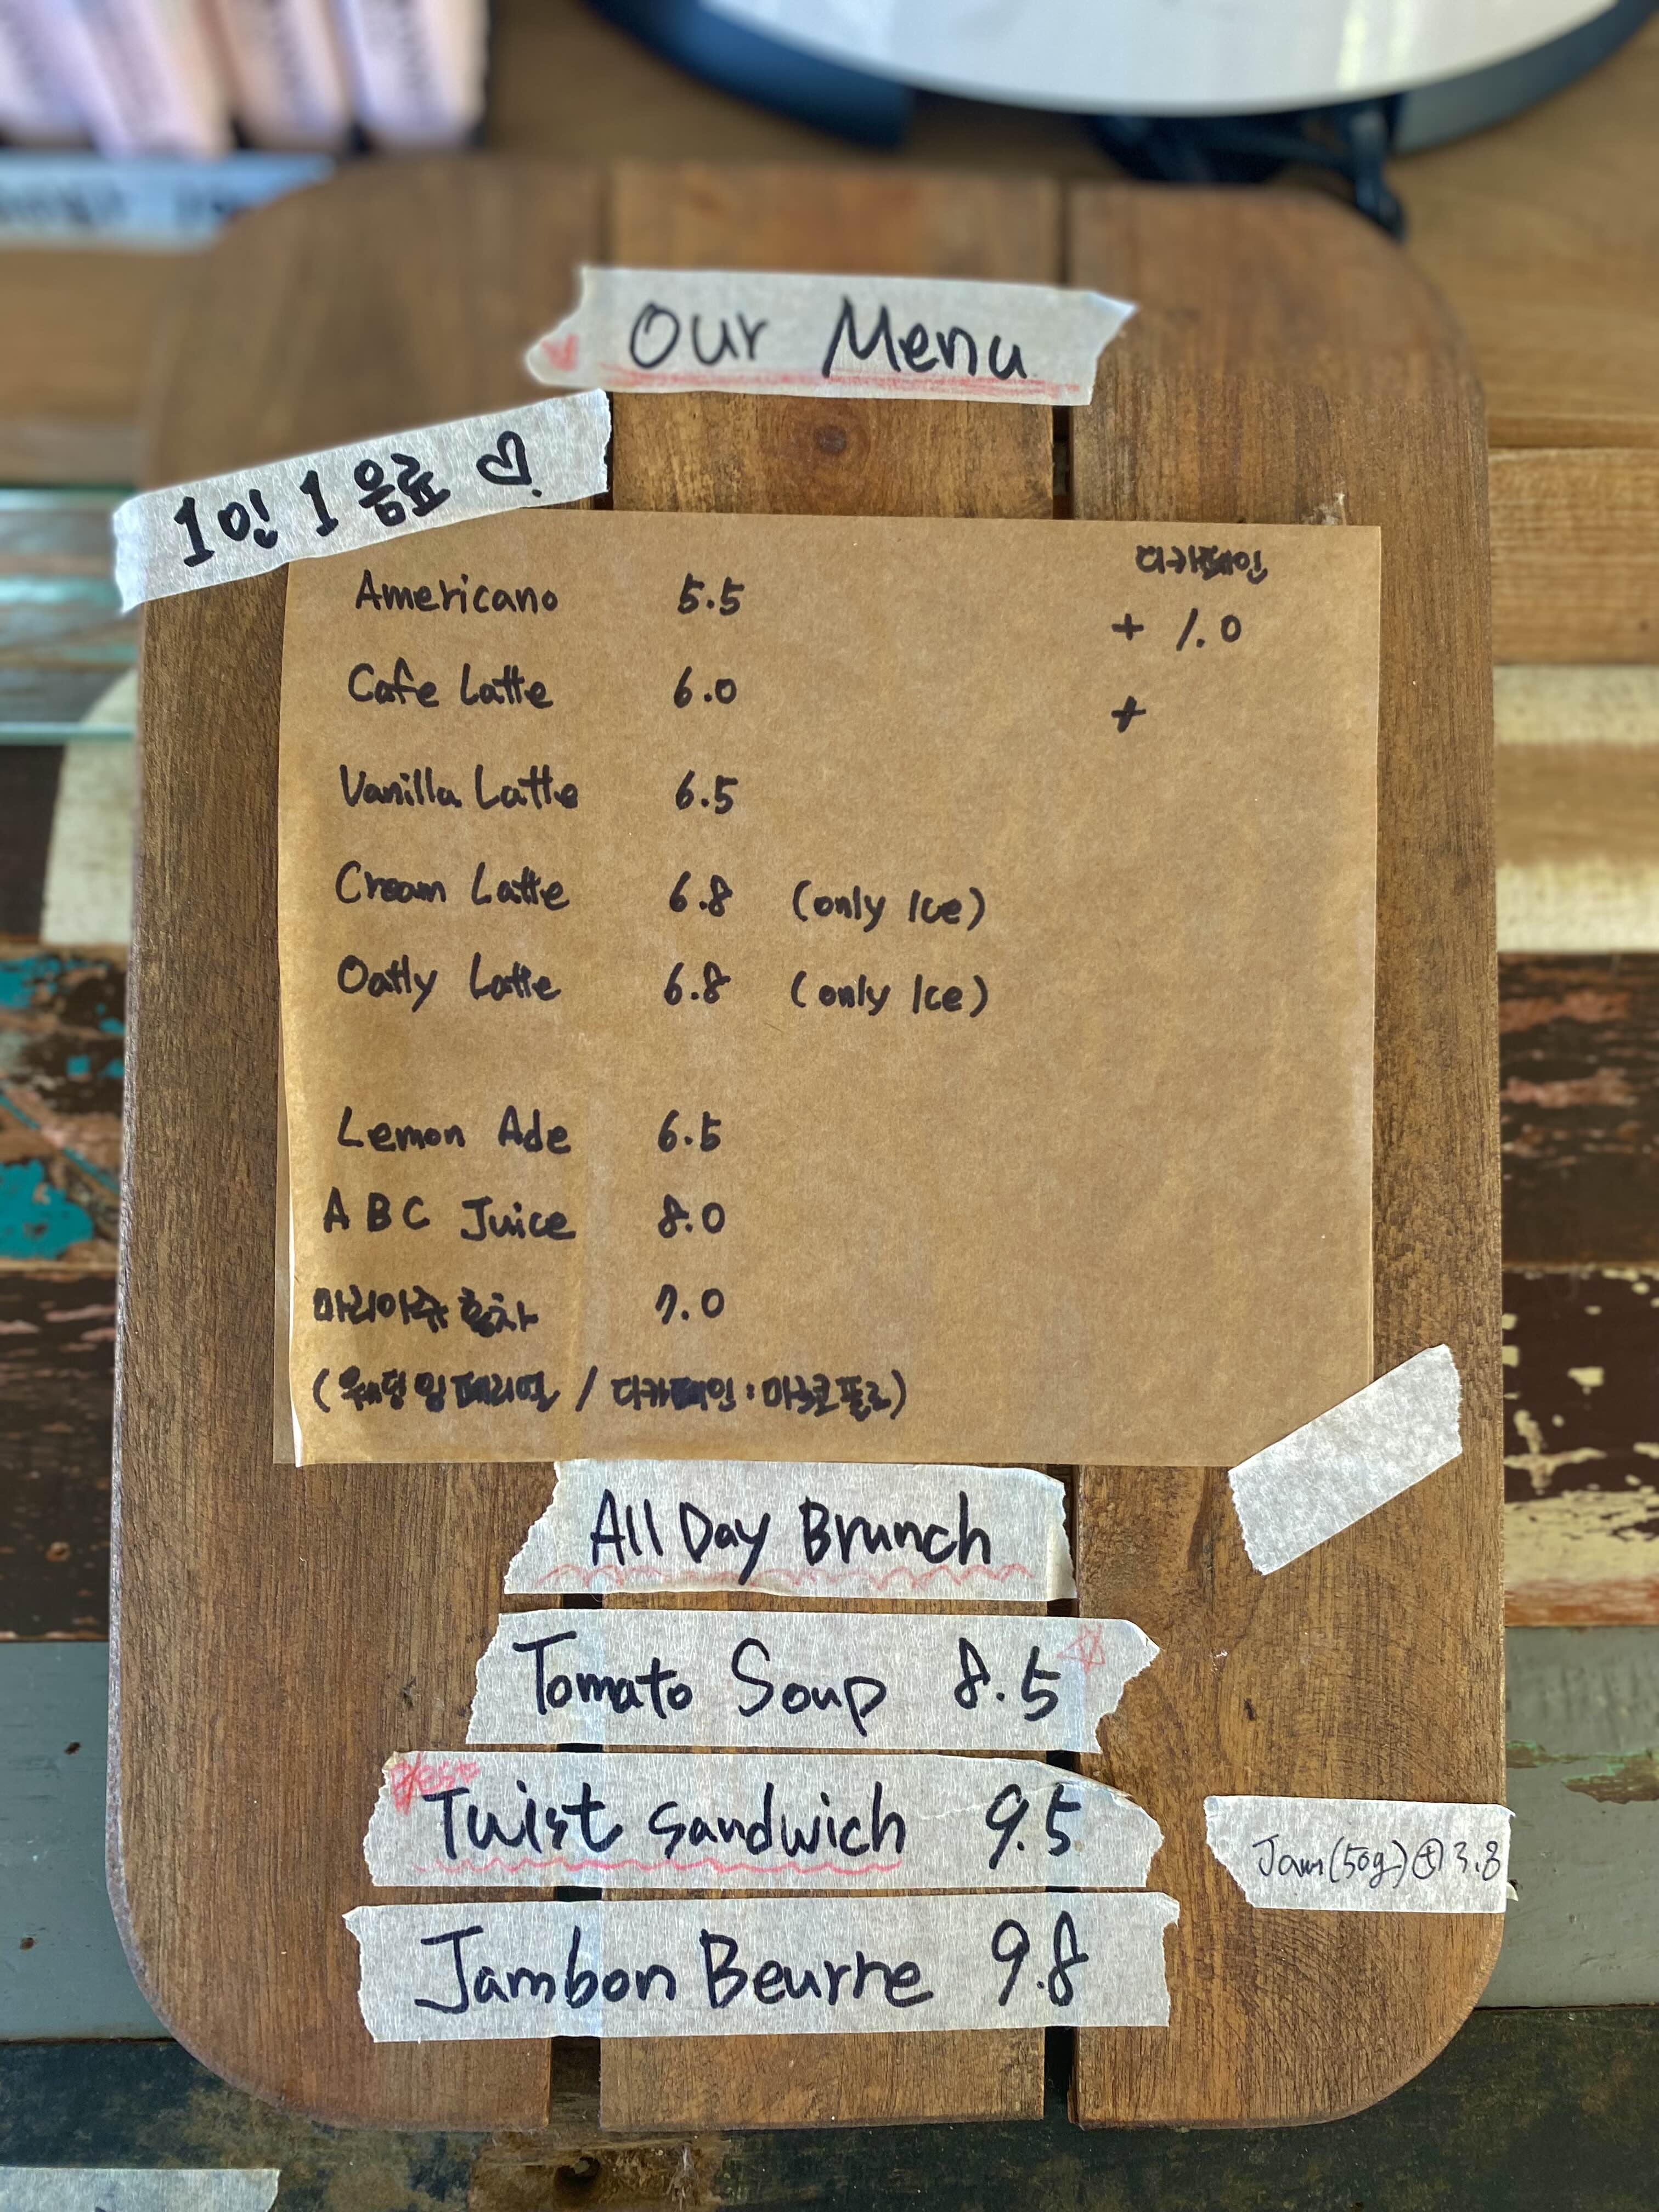 Our Menu
1인 1음료
디카페인
Americano 5.5 + 1.0
Cafe Latte 6.0 +
Vanilla Latte 6.5
Cream Latte 6.8 (only Ice)
Oatly Latte 6.8 (only Ice)
Lemon Ade 6.5
ABC Juice 8.0
마리아쥬 홍차 7.0
(웨딩 임페리얼 / 디카페인 : 마르코폴로)
All Day Brunch
Tomato Soup 8.5
Twist Sandwich 9.5
Jam(50g) + 3.8
Jambon Beurre 9.8